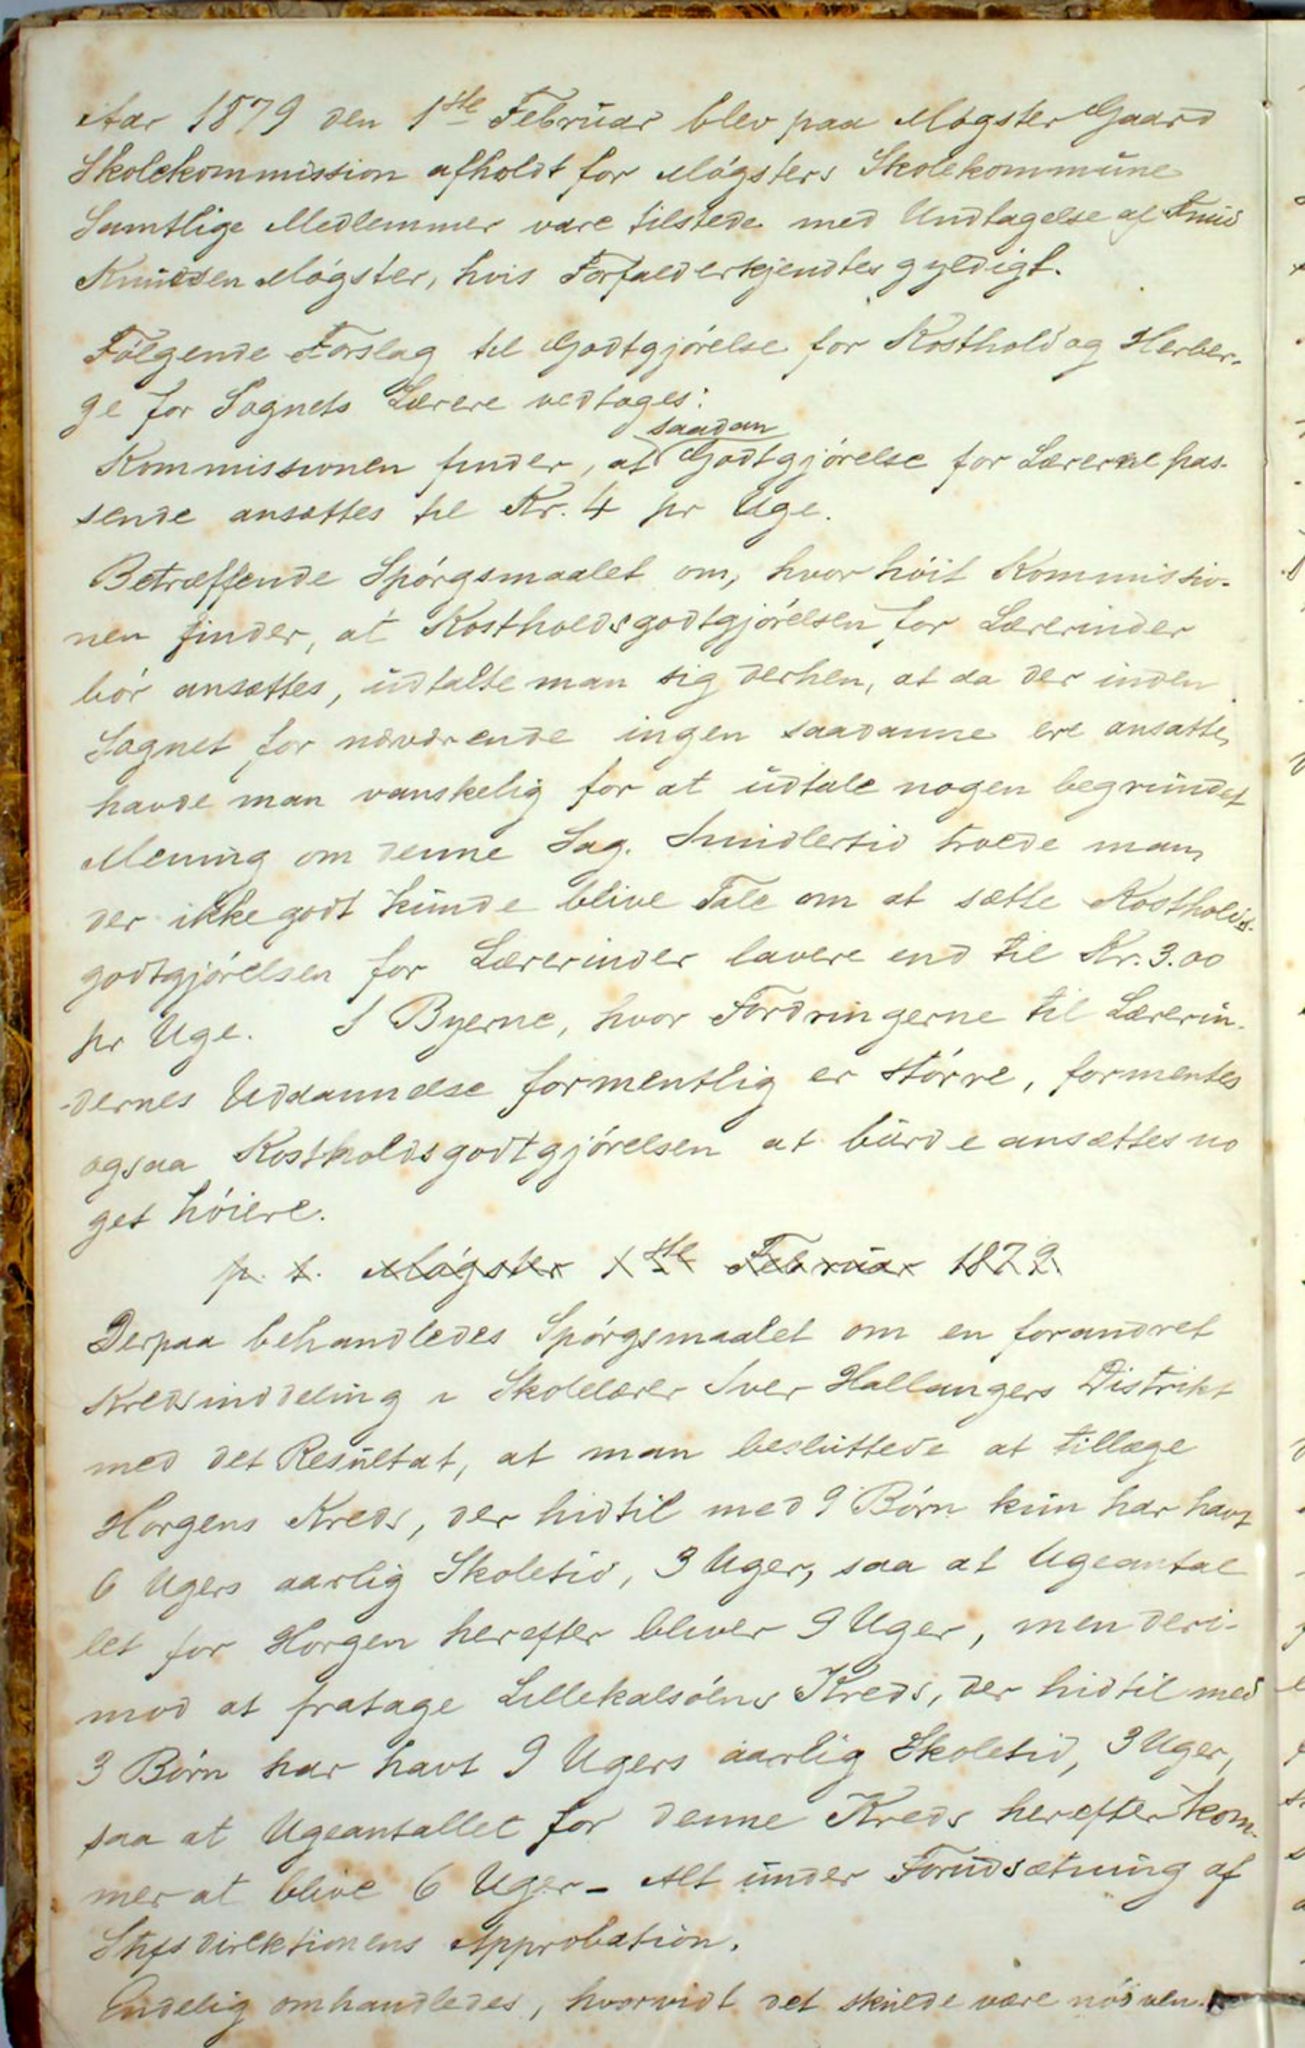 Aar 1879 den 1ste Februar blev paa Møgster Gaard
Skolekommission afholdt for Møgsters Skolekommune
Samtlige Medlemmer vare tilstede med Undtagelse af Knud
Knudsen Møgster, hvis Forfald erkjendtes gyldigt.
Følgende Forslag til Godtgjørelse for Kosthold og Herber-
ge for Sognets Lærere vedtoges:
saadan
Kommissionen finder, at Godtgjørelse for Lærerne pas-
sende ansættes til Kr. 4 pr Uge.
Betræffende Spørgsmaalet om, hvor høit Kommissio-
nen finder, at Kostholdsgodtgjørelsen for Lærerinder
bør ansættes, udtalte man sig derhen, at da der inden
Sognet for nærværende ingen saadanne ere ansatte,
havde man vanskelig for at udtale nogen begrundet
Mening om denne Sag. Imidlertid troede man,
der ikke godt kunde blive Tale om at sætte Kostholds-
godtgjørelsen for Lærerinder lavere end til Kr. 3.00
pr Uge. I Byerne, hvor Fordringerne til Lærerin-
-dernes Uddannelse formentlig er større, formentes
ogsaa Kostholdsgodtgjørelsen at burde ansættes no
get høiere.
p. t. Møgster 1ste Februar 1879.
Derpaa behandledes Spørgsmaalet om en forandret
Kredsinddeling i Skolelærer Iver Hallangers Distrikt
med det Resultat, at man besluttede at tillæge
Horgens Kreds, der hidtil med 9 Børn kun har havt
6 Ugers aarlig Skoletid, 3 Uger, saa at Ugeantal
let for Horgen herefter bliver 9 Uger, men deri-
mod at fratage Lillekalsøens Kreds, der hidtil med
3 Børn har havt 9 Ugers aarlig Skoletid, 3 Uger,
saa at Ugeantallet for denne Kreds herefter kom-
mer at blive 6 Uger - Alt under Forudsætning af
Stiftsdirektionens Approbation.
Endelig omhandledes, hvorvidt det skulde være nødven-